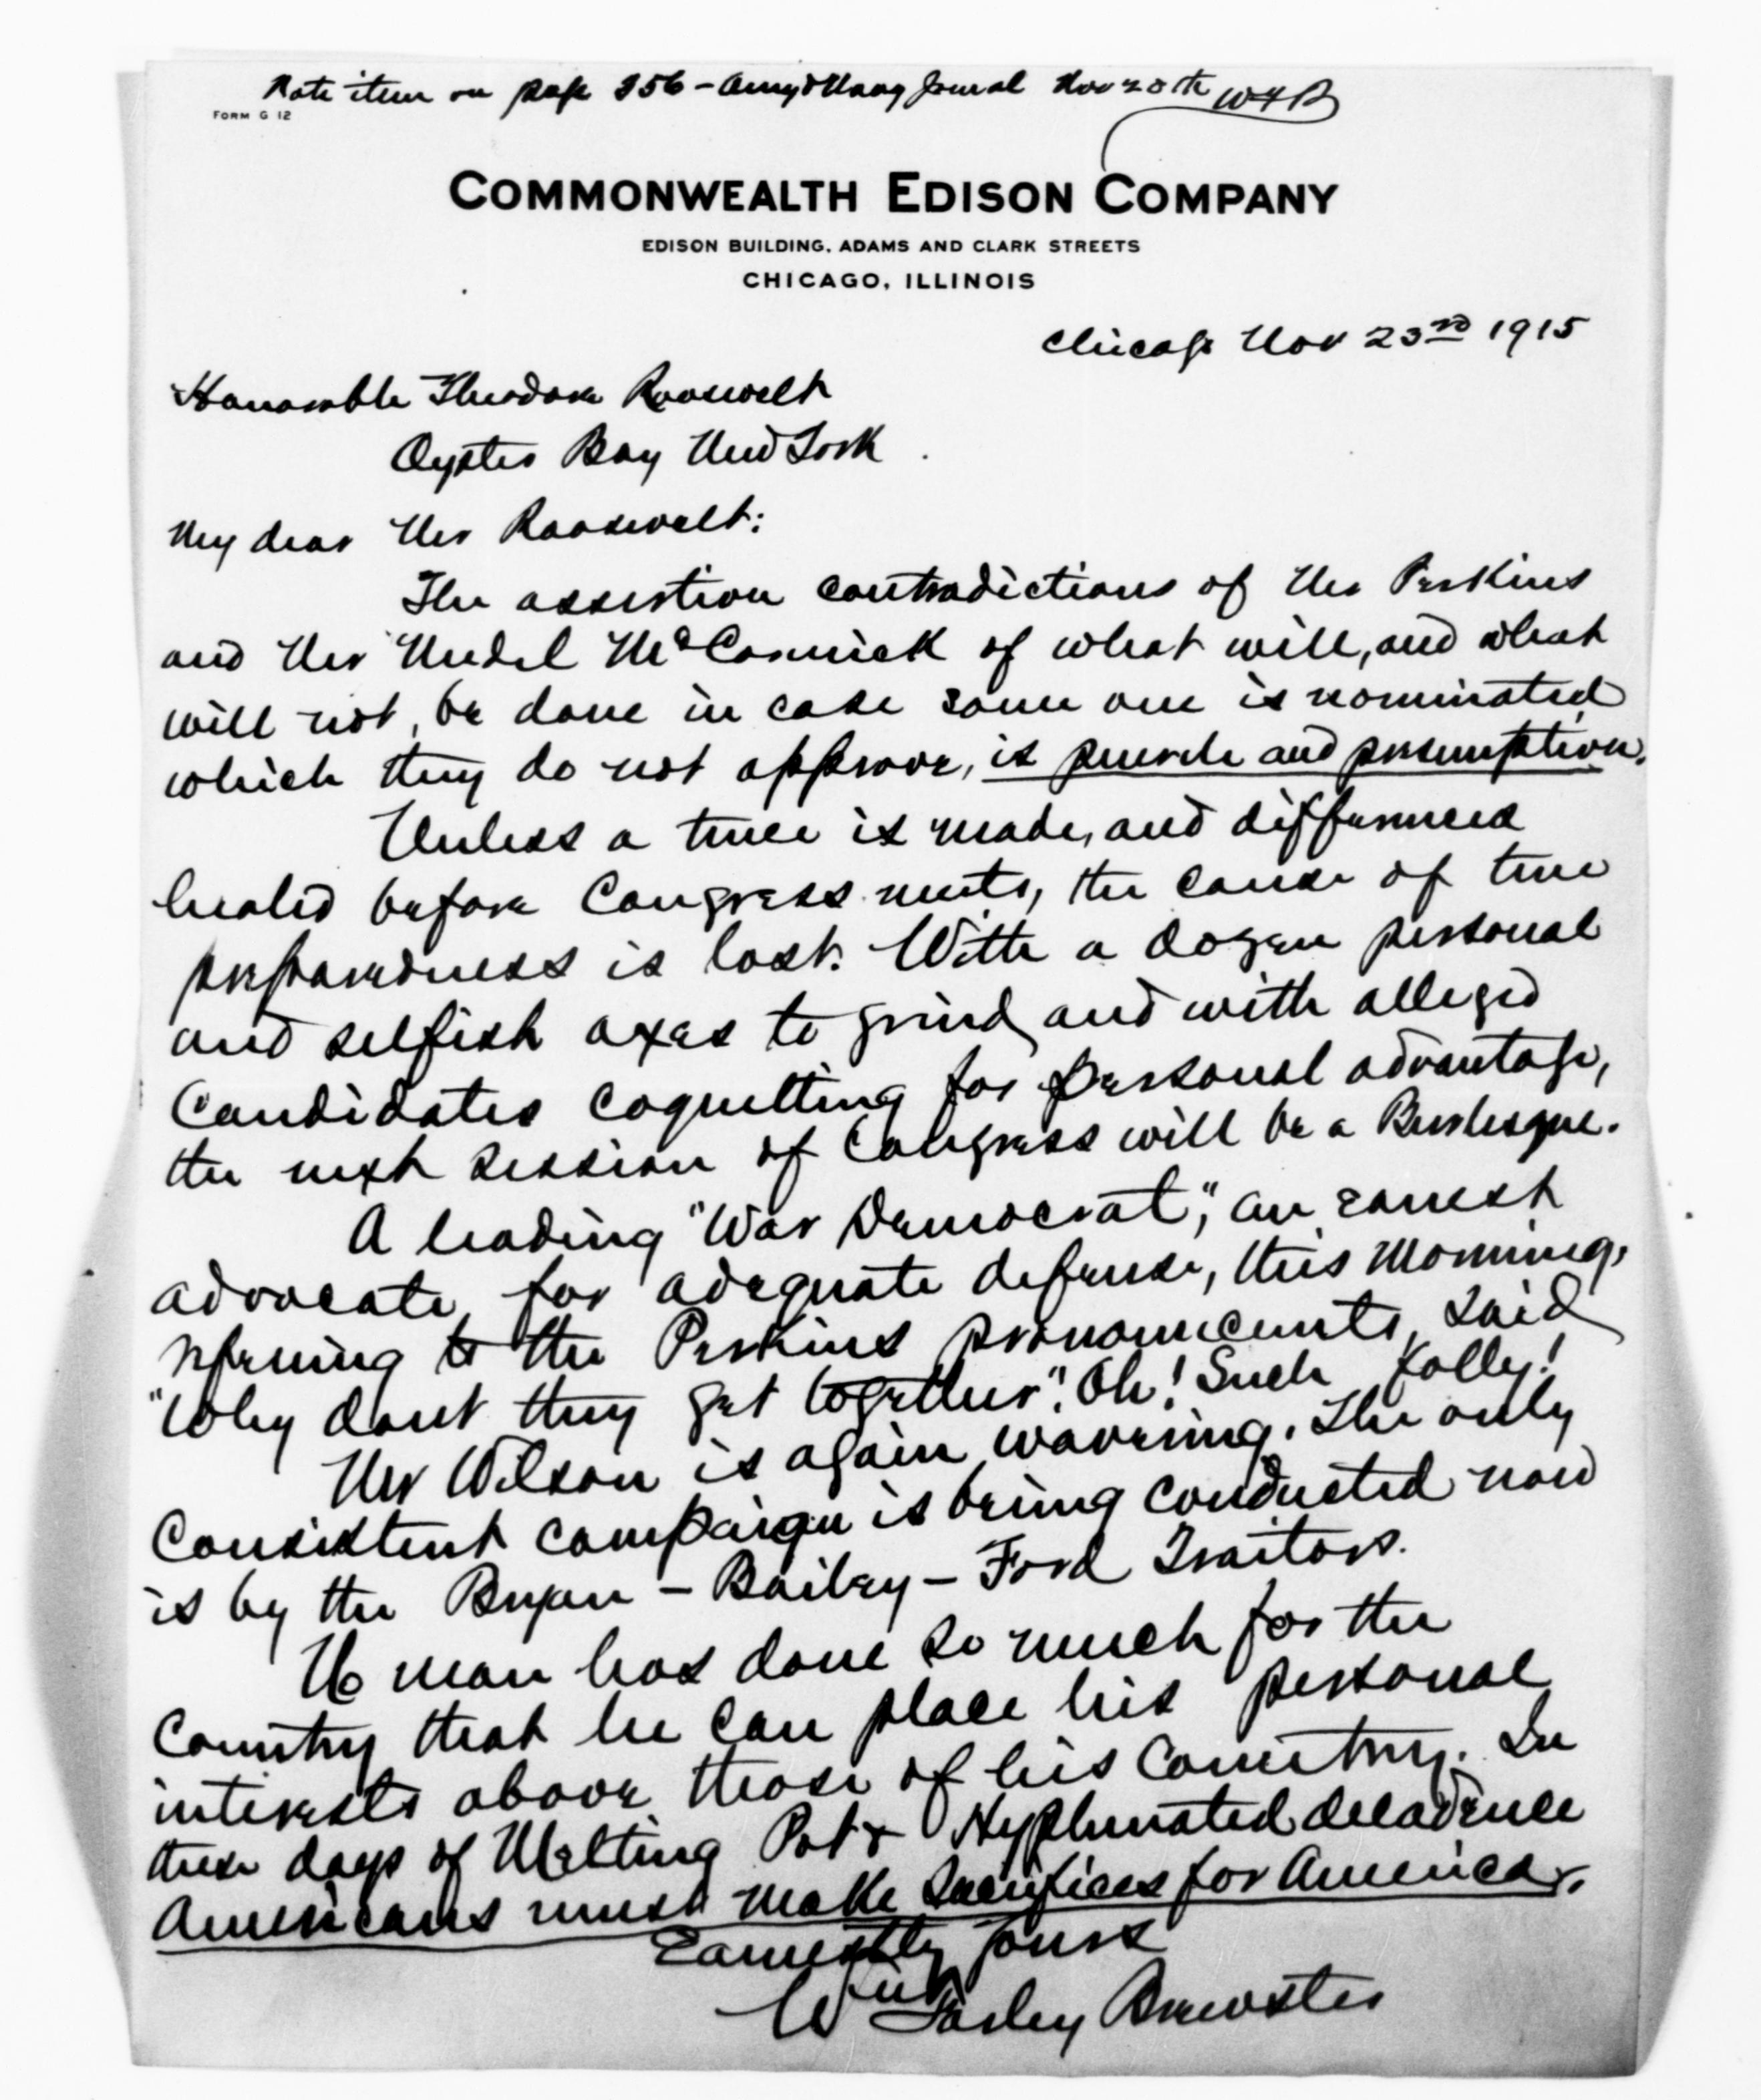 Note item on page 356 - Army & Navy Journal Nov 20th WFB
FORM G 12
COMMONWEALTH EDISON COMPANY
EDISON BUILDING, ADAMS AND CLARK STREETS
CHICAGO, ILLINOIS
Chicago Nov 23rd 1915
Honorable Theodore Roosevelt
Oyster Bay New York.
My dear Mr Roosevelt:
The assertion contradictions of Mr Perkins
and Mr Medil McCormick of what will, and what
will not, be done in case some one is nominated
which they do not approve, is puerile and presumption.
Unless a truce is made, and differences
healed before Congress meets, the cause of true
preparedness is lost. With a dozen personal
and selfish axes to grind, and with alleged
Candidates coquetting for personal advantage,
the next session of Congress will be a Burlesque.
A leading "War Democrat", an earnest
advocate for adequate defense, this morning,
referring to the Perkins pronouncements, said
"Why dont they get together". Oh! Such folly!
Mr Wilson is again wavering. The only
Consistent campaign is being conducted now
is by the Bryan - Bailey - Ford Traitors.
No man has done so much for the
Country that he can place his personal
interests above those of his Country. In
these days of Melting Pot & Hyphenated decadence
Americans must make sacrifices for America.
Earnestly Yours
Wm Farley Brewster